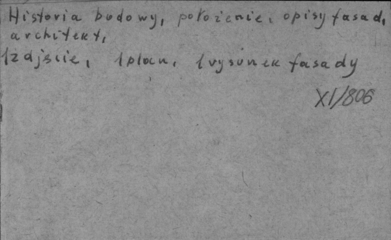 Historia budowy, położenie, opisy fasad,
architekt,
1zdjęcie, 1plan, 1rysunek fasady
XI/806